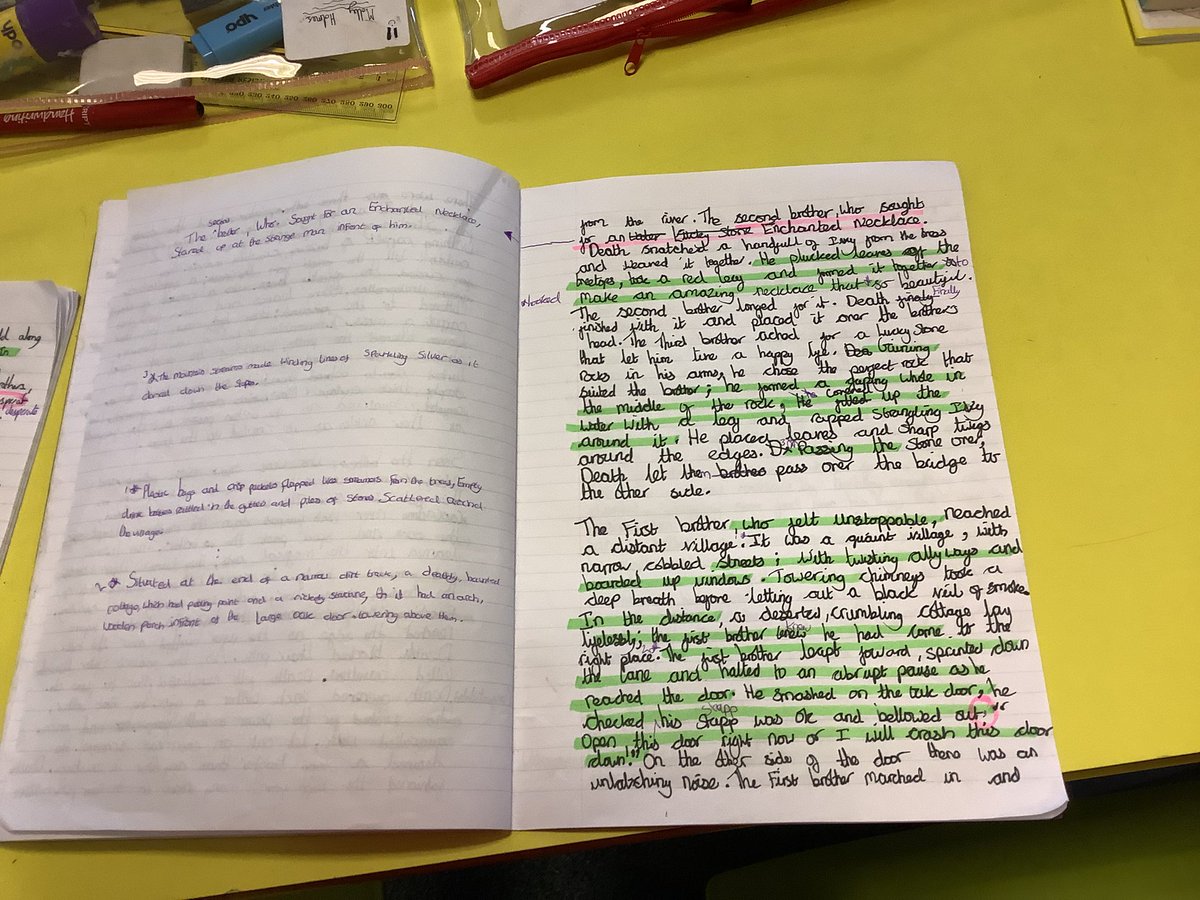 upo
Milly Holmes
upo
Handwriting
290 300 310 320 330 340 350 360 370 380 390 300
ld along
in
The second , Who Sought for an Enchanted Necklace,
Stared up at the strange man infront of him.
The mountain streams made winding lines of sparkling Silver as it
danced down the slopes.
1* Plastic bags and crisp packets flapped like streamers from the trees, Empty
drink bottles rattled in the gutters and piles of stones Scattered around
the village.
2* Situated at the end of a narrow dirt track, a deathly, haunted
cottage, which had peeling paint and a rickety staircase, it had an arch,
wooden porch infront of the large oak door towering above them.
from the river. The second brother, who sought
for an Water Enchanted Necklace.
Death snatched a handfull of Ivy from the trees
and weaved it together. He plucked leaves off the
treetops, took a red leg and joined it together to
Hooked
make an amazing necklace that so beautiful.
The second brother longed for it. Death finaly Finally
finished with it and placed it over the brothers
head. The Third brother ached for a Lucky Stone
that let him live a happy life.
rocks in his arms, he chose the perfect rock that
suited the brother; he formed a gaping whole in
the middle of the rock, He filled up the
water with a leg and rapped strangling Ivy
around it. He placed leaves and sharp twigs
around the edges. Passing the stone over,
Death let them brothers pass over the bridge to
the other side.
The First brother, who felt unstoppable, reached
a distant village. It was a quaint village, with
narrow, cobbled streets; with twisting allyways and
boarded up windows. Towering chimneys took a
deep breath before letting out a black veil of smoke.
In the distance, a deserted, crumbling cottage lay
lifelessly; the first brother knew he had come to the
right place. The first brother leapt forward, sprinted down
the lane and halted to an abrupt pause as he
reached the door. He smashed on the oak door, he
checked his stapp was ok and bellowed out; "
Open this door right now or I will crash this door
down!" On the other side of the door there was an
unlatching noise. The First brother marched in and